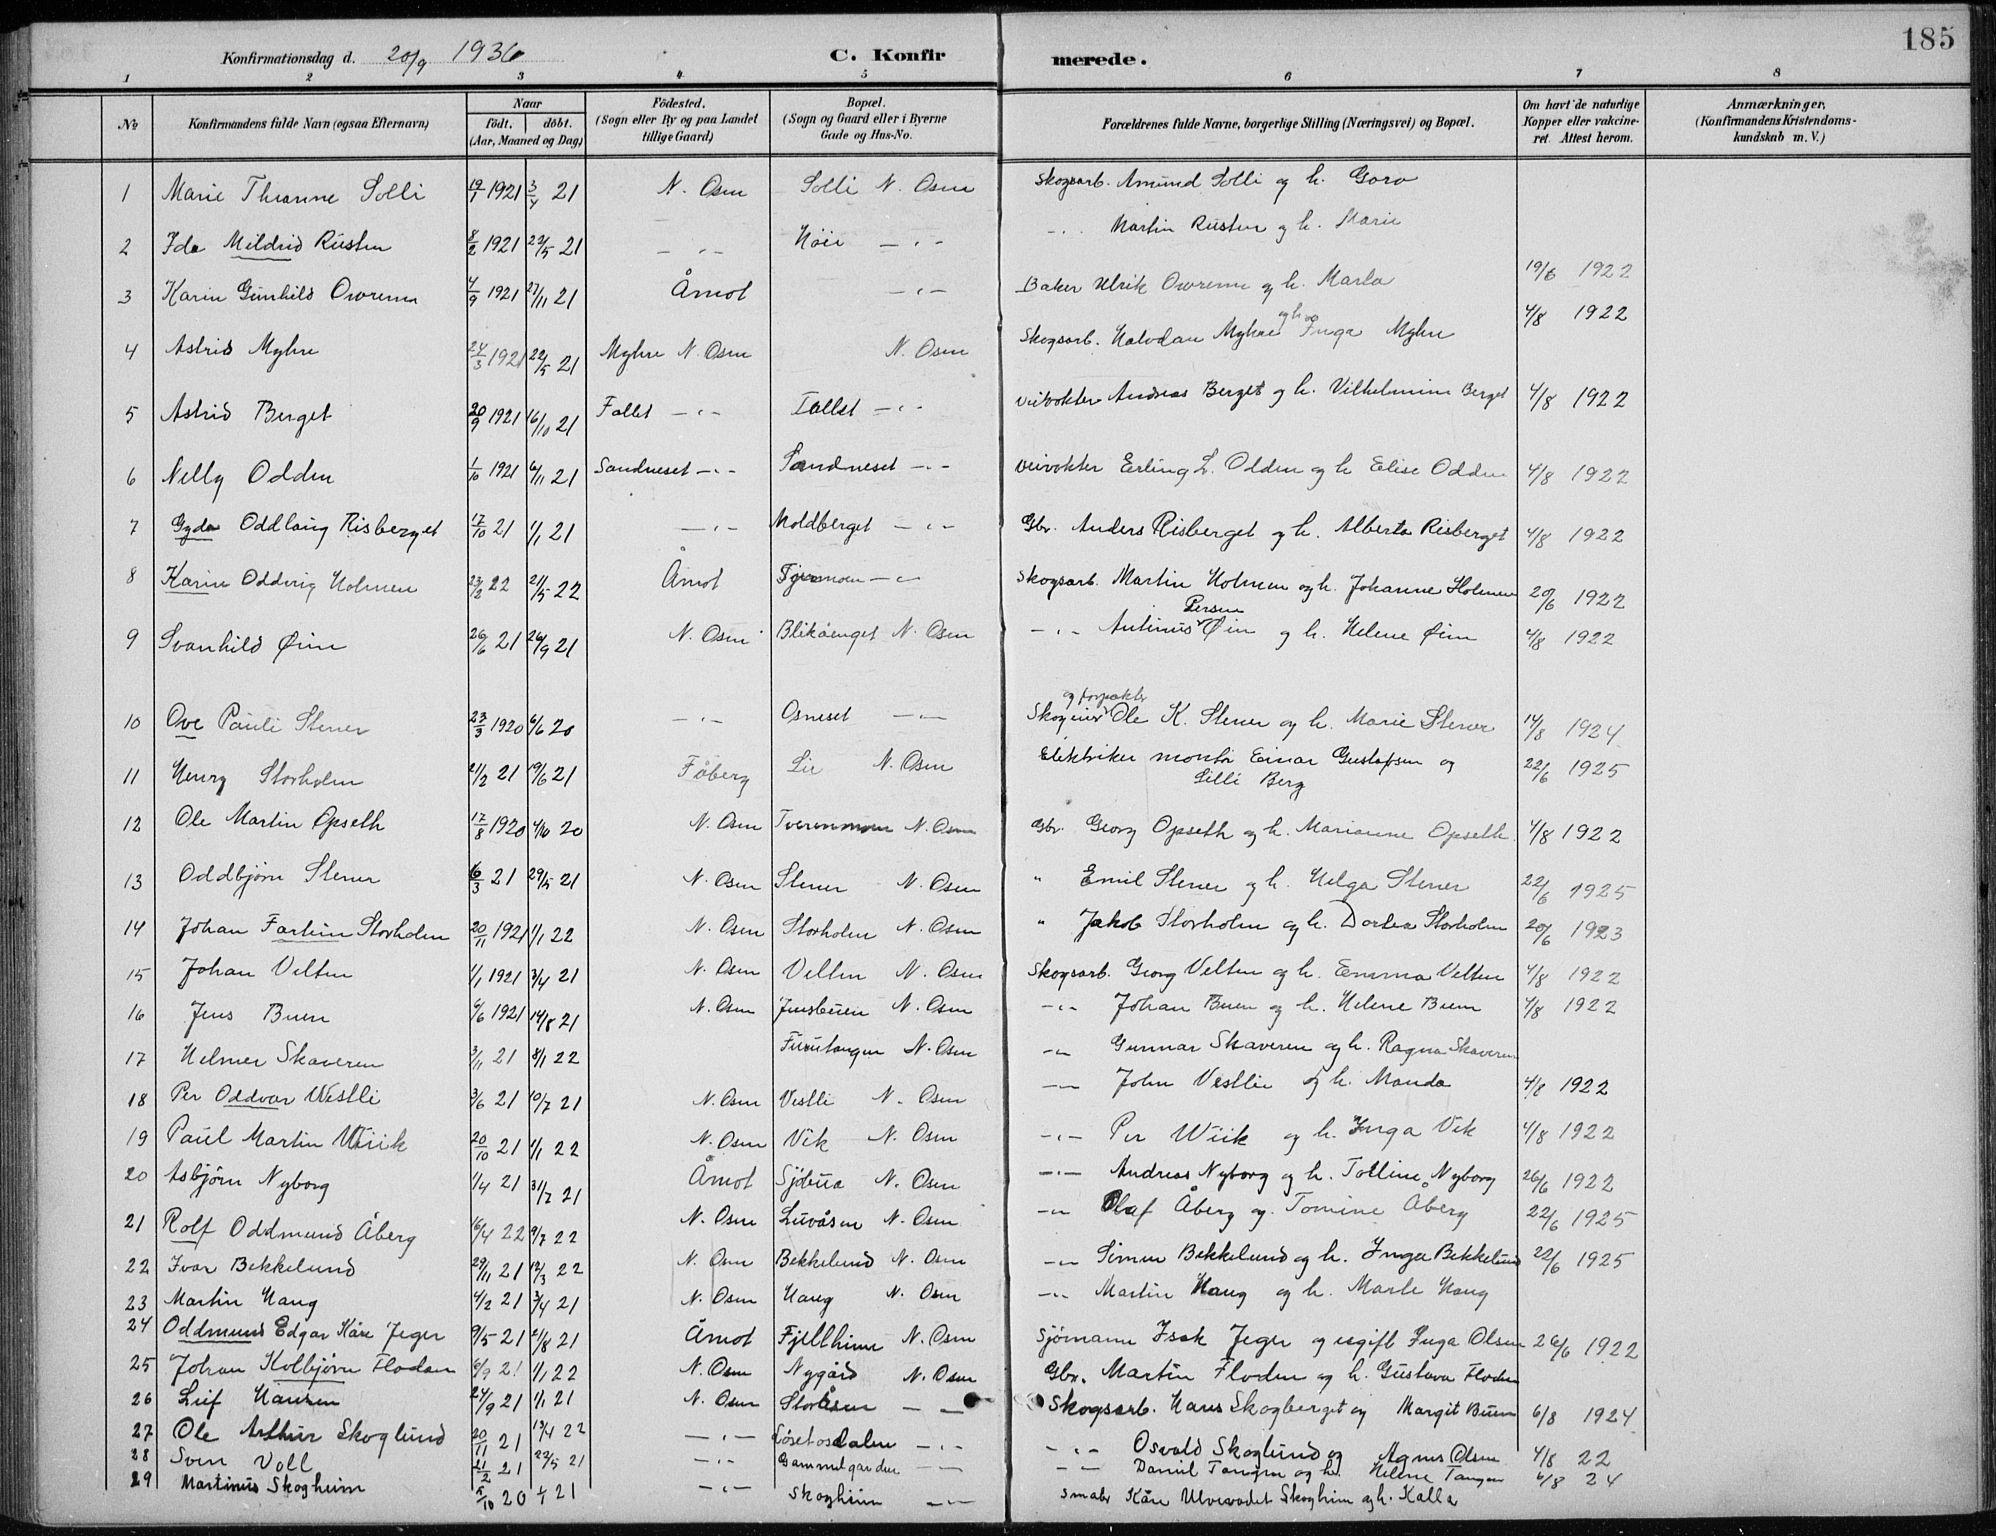 185
Konfirmationsdag d. 20/9 1936 C. Konfirmerede.
1 2 3 4 5 6 7 8
No Konfirmandens fulde Navn (ogsaa Efternavn) Naar født. døbt. (Aar, Maaned og Dag) Fødested. (Sogn eller By og paa Landet tillige Gaard) Bopæl. (Sogn og Gaard eller i Byerne Gade og Hus-No. Forældrenes fulde Navne, borgerlige Stilling (Næringsvei) og Bopæl. Om havt de naturlige Kopper eller vakcineret. Attest herom. Anmærkninger, (Konfirmandens Kristendomskundskab m. V.)
1 Marie Solli 19/1 1921 3/4 21 N. Osen Solli N. Osen Skogsarb. Amund Solli og h. Goro
2 Ida Mildrid Rusten 8/2 1921 22/5 21 - " - Høie - " - - " - Martin Rusten og h. Marie 19/6 1922
3 Karin Gunhild Owrenn 4/9 1921 27/11 21 Åmot - " - Baker Ulrik Owrenn og h. Marla 4/8 1922
4 Astrid Myhre 24/3 1921 22/5 21 Myhre N. Osen N. Osen Skogsarb. Halvdan Myhre og h. Inga Myhre
5 Astrid Berget 20/9 1921 16/10 21 Fallet - " - Fallet - " - Veivokter Andreas Berget og h. Vilhelmine Berget 4/8 1922
6 Nelly Odden 1/10 1921 6/11 21 Sandneset - " - Sandneset - " - Veivokter Erling L. Odden og h Elise Odden 4/8 1922
7 Gyda Oddlaug Risberget 17/10 21 1/1 21 - " - Moldberget - " - Gbr. Anders Risberget og h. Alberta Risberget 4/8 1922
8 Karin Oddvig Holmen 23/2 22 21/5 22 Åmot - " - Skogsarb. Martin Holmen og h. Johanne Holmen 20/6 1922
9 Svanhild Øien 26/6 21 26/9 21 N. Osen Blikåenget N. Osen - " - Antinus Persen Øien og h. Helene Øien 4/8 1922
10 Ove Pauli Stener 23/3 1920 6/6 20 - " - Osneset - " - og forpakter Ole K. Stener og h. Marie Stener 14/8 1924
11 Henry Storholen 21/2 21 19/6 21 Fåberg Lie N. Osen Elektriker montør Einar Gustafsen og Lilli Berg 22/6 1925
12 Ole Martin Opseth 17/8 1920 4/10 20 N. Osen N. Osen Gbr. Georg Opseth og h. Marianne Opseth 4/8 1922
13 Oddbjørn Stener 6/3 21 29/5 21 N. Osen Stener N. Osen " Emil Stener og h. Helga Stener 22/6 1925
14 Johan Fartein Storholen 20/11 1921 1/1 22 N. Osen Storholen N. Osen " Jakob Storholen og h. Dortea Storholen 20/6 1923
15 Johan Velten 1/1 1921 3/4 21 N. Osen Velten N. Osen Skogsarb. Georg Velten og h. Emma Velten 4/8 1922
16 Jens Buen 6/6 1921 14/8 21 N. Osen Jensbuen N. Osen - " - Johan Buen og h. Helene Buen 4/8 1922
17 Helmer Skaveren 3/11 21 8/1 22 Furutangen N. Osen - " - Gunnar Skaveren og h. Ragna Skaveren
18 Per Oddvar Westli 3/6 21 10/7 21 N. Osen Vestli N. Osen - " - John Vestlie og h. Manda 4/8 1922
19 Paul Martin Wiik 20/10 21 1/1 22 N. Osen Vik N. Osen - " - Per Wiik og h. Inga Vik 4/8 1922
20 Asbjørn Nyborg 1/4 21 31/7 21 Åmot Sjøbua N. Osen - " - Andreas Nyborg og h. Tolline Nyborg 26/6 1922
21 Rolf Oddmund Åberg 16/4 22 9/7 22 N. Osen Luvåsen N. Osen - " - Olaf Åberg og Tomine Åberg 22/6 1925
22 Ivar Bekkelund 29/11 21 12/3 22 N. Osen Bekkelund N. Osen - " - Simen Bekkelund og h. Inga Bekkelund 22/6 1925
23 Martin Haug 4/2 21 3/4 21 N. Osen Haug N. Osen - " - Martin Haug og h. Marte Haug
24 Oddmund Edgar Kåre Jeger 9/5 21 21/8 21 Åmot Fjellheim N. Osen Sjømann Isak Jeger og ugift Inga Olsen 26/6 1922
25 Johan Kolbjørn Floden 6/9 21 1/1 22 N. Osen Nygård N. Osen Gbr. Martin Floden og h. Gustava Floden
26 Leif Hansen 24/9 21 1/1 21 N. Osen Storåsen - " - Skogsarb. Hans Skogberget og Margit Buen 6/8 1924
27 Ole Arthur Skoglund 20/11 21 17/4 22 - " - Løsetosdalen - " - - " - Osvald Skoglund og Agnes Olsen 4/8 22
28 Sven Voll 21/2 21 22/5 21 - " - Gammelgarden - " - - " - Daniel Tangen og h. Helene Tangen 6/8 24
29 Martinus Skogheim 5/10 20 1/1 21 - " - Skogheim - " - Småbr Kåre Skogheim og h. Kalla